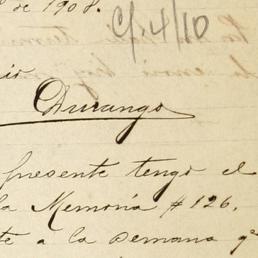 de 1908.
Cf. 4/10
Durango
presente tengo el
la Memoria # 126.
te a la semana q